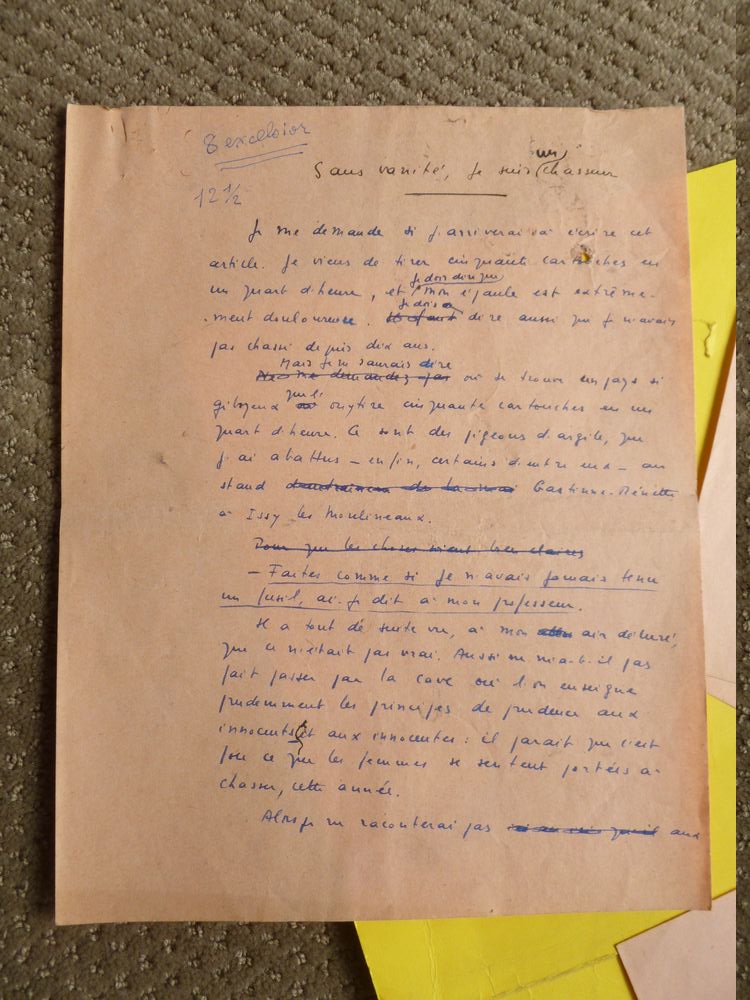 8 excelsior
12 1/2
un
Sans vanité, je suis chasseur
Je me demande si j'arriverai à écrire cet
article. Je viens de tirer cinquante cartouches en
Je dois dire que
un quart d'heure, et mon épaule est extrême-
Je dois
ment douloureuse. Il faut dire aussi que je n'avais
pas chassé depuis dix ans.
Mais je ne saurais dire
Ne me demandez pas où se trouve un pays si
qu'il
giboyeux où on y tire cinquante cartouches en un
quart d'heure. Ce sont des pigeons d'argile, que
j'ai abattus – enfin, certains d'entre eux – au
stand Gastinne-Rénette
à Issy les Moulineaux.
Pour que les choses soient bien claires
– Faites comme si je n'avais jamais tenu
un fusil, ai-je dit à mon professeur.
Il a tout de suite vu, à mon air déluré,
que ce n'était pas vrai. Aussi ne m'a-t-il pas
fait passer par la cave où l'on enseigne
prudemment les principes de prudence aux
innocents et aux innocentes : il paraît que c'est
fou ce que les femmes se sentent portées à
chasser, cette année.
Alors je ne raconterai pas aux